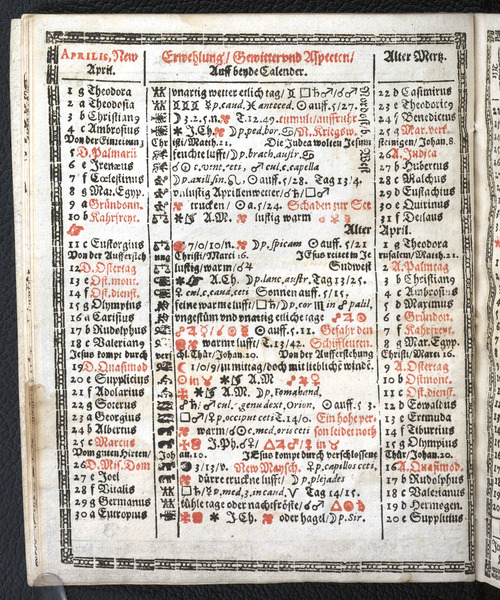 APRILIS, New Erwehlung/ Gewitter vnd Aspecten/ Alter Mertz.
April. Auff beyde Calender.
1 g Theodora vnartig wetter etlich tag/ 22 d Casimirus
2 a Theodosia p. caud. anteced. auff 5/27. 23 e Theodoric9
3 b Christian9 3.2.5.n. T.12.49. tumult/auffruhr 24 f Benedictus
4 c Ambrosius J.Ch. Dp. ped. bor. N. Kriegsw. 25 g Mar. verk.
Von der Einreitung Christi/Matth.21. Die Juden wolten Jesum steinigen/Johan.8
5 D. Palmarū feuchte lufft/ Dp. brach. austr. 26 A. Judica
6 e Irenæus c. vent. cet. cul. c. capella 27 b Hubertus
7 f Cœlestinus Dp. axill. sin. auff. 5/28. Tag 13/4. 28 c Malchus
8 g Mar. Egyp. v. lustig Aprillenwetter 29 d Eustachius
9 a Gründonn. trucken/ a. 5/24. Schaden zur See 30 e Quirinus
10 b Kahrfreyt. A.M. lustig warm 31 f Detlaus
Alter April.
11 c Eustorgius 7/0/10/n. Dp. spicam auff. 5/21 1 g Theodora
Von der Aufferstehung Christi/Marci 16. Jesus reitet in Jerusalem/Matth.21.
12 D. Ostertag lustig/warm Sudwest 2 A. Palmtag
13 e Ost. mont. A.Ch. Dp. lanc. austr. Tag 13/25. 3 b Christian9
14 f Ost. dienst. cul. c. caud. ceti Sonnen auff. 5/15. 4 c Ambrosius
15 g Olympius feine warme lufft/ Dp. cor in palil. 5 d Maximus
16 a Carisius vngestüm vnd vnartig etliche tage 6 e Gründon.
17 b Rudolphus auff. 5.11. Gefahr den 7 f Kahrfreyt.
18 c Valerian9 warme lufft/ T.13/42. Schiffleuten 8 g Mar. Egyp.
Jesus kompt durch verschl. Thür/Johan.20. Von der Aufferstehung Christi/Marci 16.
19 D. Quasimod 1/0/9/n mittag/doch mit liebliche winde. 9 A. Ostertag
20 e Sulpitius in A.M 10 b Ostmont.
21 f Adolarius A.M. Dp. Fomahand, 11 c Ost. dienst.
22 g Soterus cul. genu dext. Orion. auff 5 3. 12 d Eowaldus
23 a Georgius p. occiput ceti T.14/0. Ein hohe per- 13 e Ermundo
24 b Albertus warm c. med. oris ceti son leidet noth 14 f Tiburtius
25 c Marcus J.Ph. in 15 g Olympius
Vom guten Hirten/ Joh an.10. Jesus kompt durch verschlossene Thür/Johan.20.
26 D. Mis. Dom 3/13/v. New Maysch. p. capillos ceti, 16 A. Quasimod.
27 e Joel dürre truckne lufft/ Dp. plejades 17 b Rudolphus
28 f Vitalis p. med. 3. in caud. Tag 14/15. 18 c Valerianus
29 g Germanus kühle tage oder nachtfröste/ 19 d Hermogen.
30 a Eutropius J.Ch. oder hagel/ Dp. Sir. 20 e Sulpitius